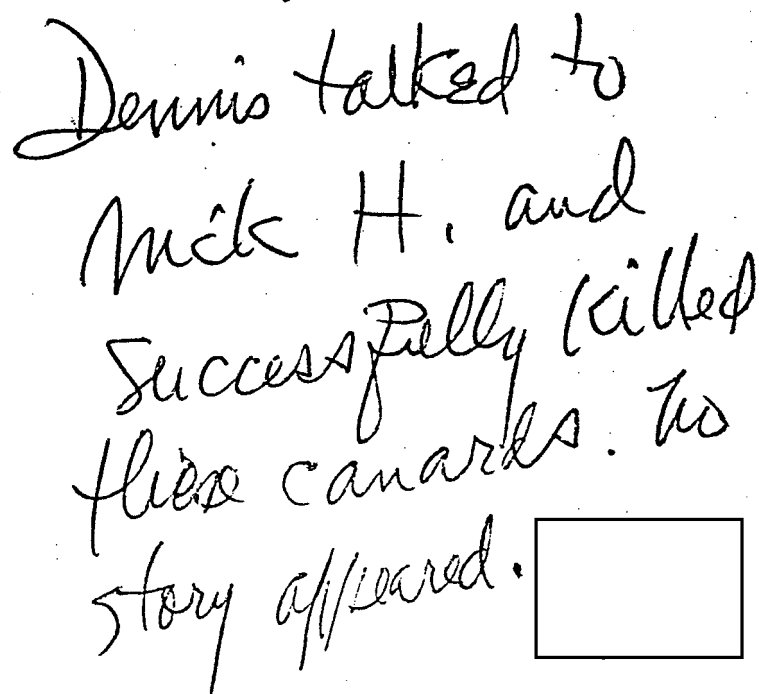 Dennis talked to
Nick H. and
successfully killed
these canards. No
story appeared.